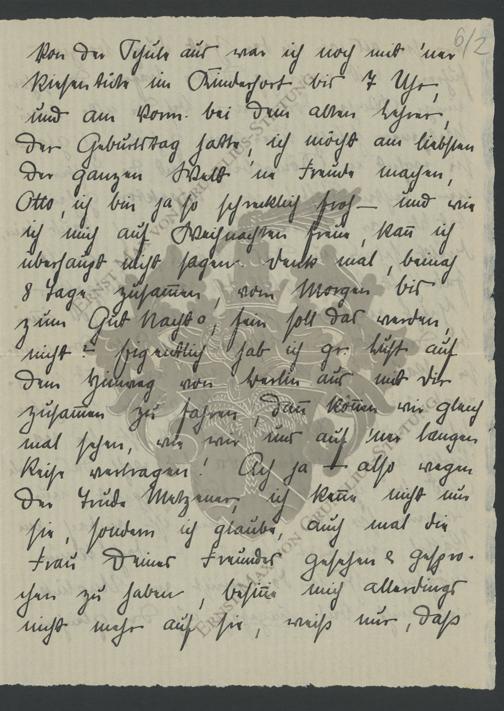 6/2
Von der Schule aus war ich noch mit 'ner
Riesentüte im Kinderhort bis 7 Uhr,
und am Vorm. bei dem alten Lehrer,
der Geburtstag hatte, ich möcht am liebsten
der ganzen Welt 'ne Freude machen,
Otto, ich bin ja so schrecklich froh – und wie
ich mich auf Weihnachten freue, kan̄ ich
überhaupt nicht sagen. Denk mal, beinah
8 Tage zusam̄en, vom Morgen bis
zum Gut Nacht, fein soll das werden,
nicht? Eigentlich hab ich gr. Lust auf
dem Hinweg von Berlin aus mit Dir
zusam̄en zu fahren, dan̄ kön̄en wir gleich
mal sehen, wie wir uns auf 'ner langen
Reise vertragen! Ach ja – also wegen
der Trude Metzener, ich ken̄e nicht nur
sie, sondern ich glaube, auch mal die
Frau Deines Freundes gesehen & gespro-
chen zu haben, besin̄e mich allerdings
nicht mehr auf sie, weiß nur, daß
ERNST MAX VON GRUNELIUS-STIFTUNG
ERNST MAX VON GRUNELIUS-STIFTUNG